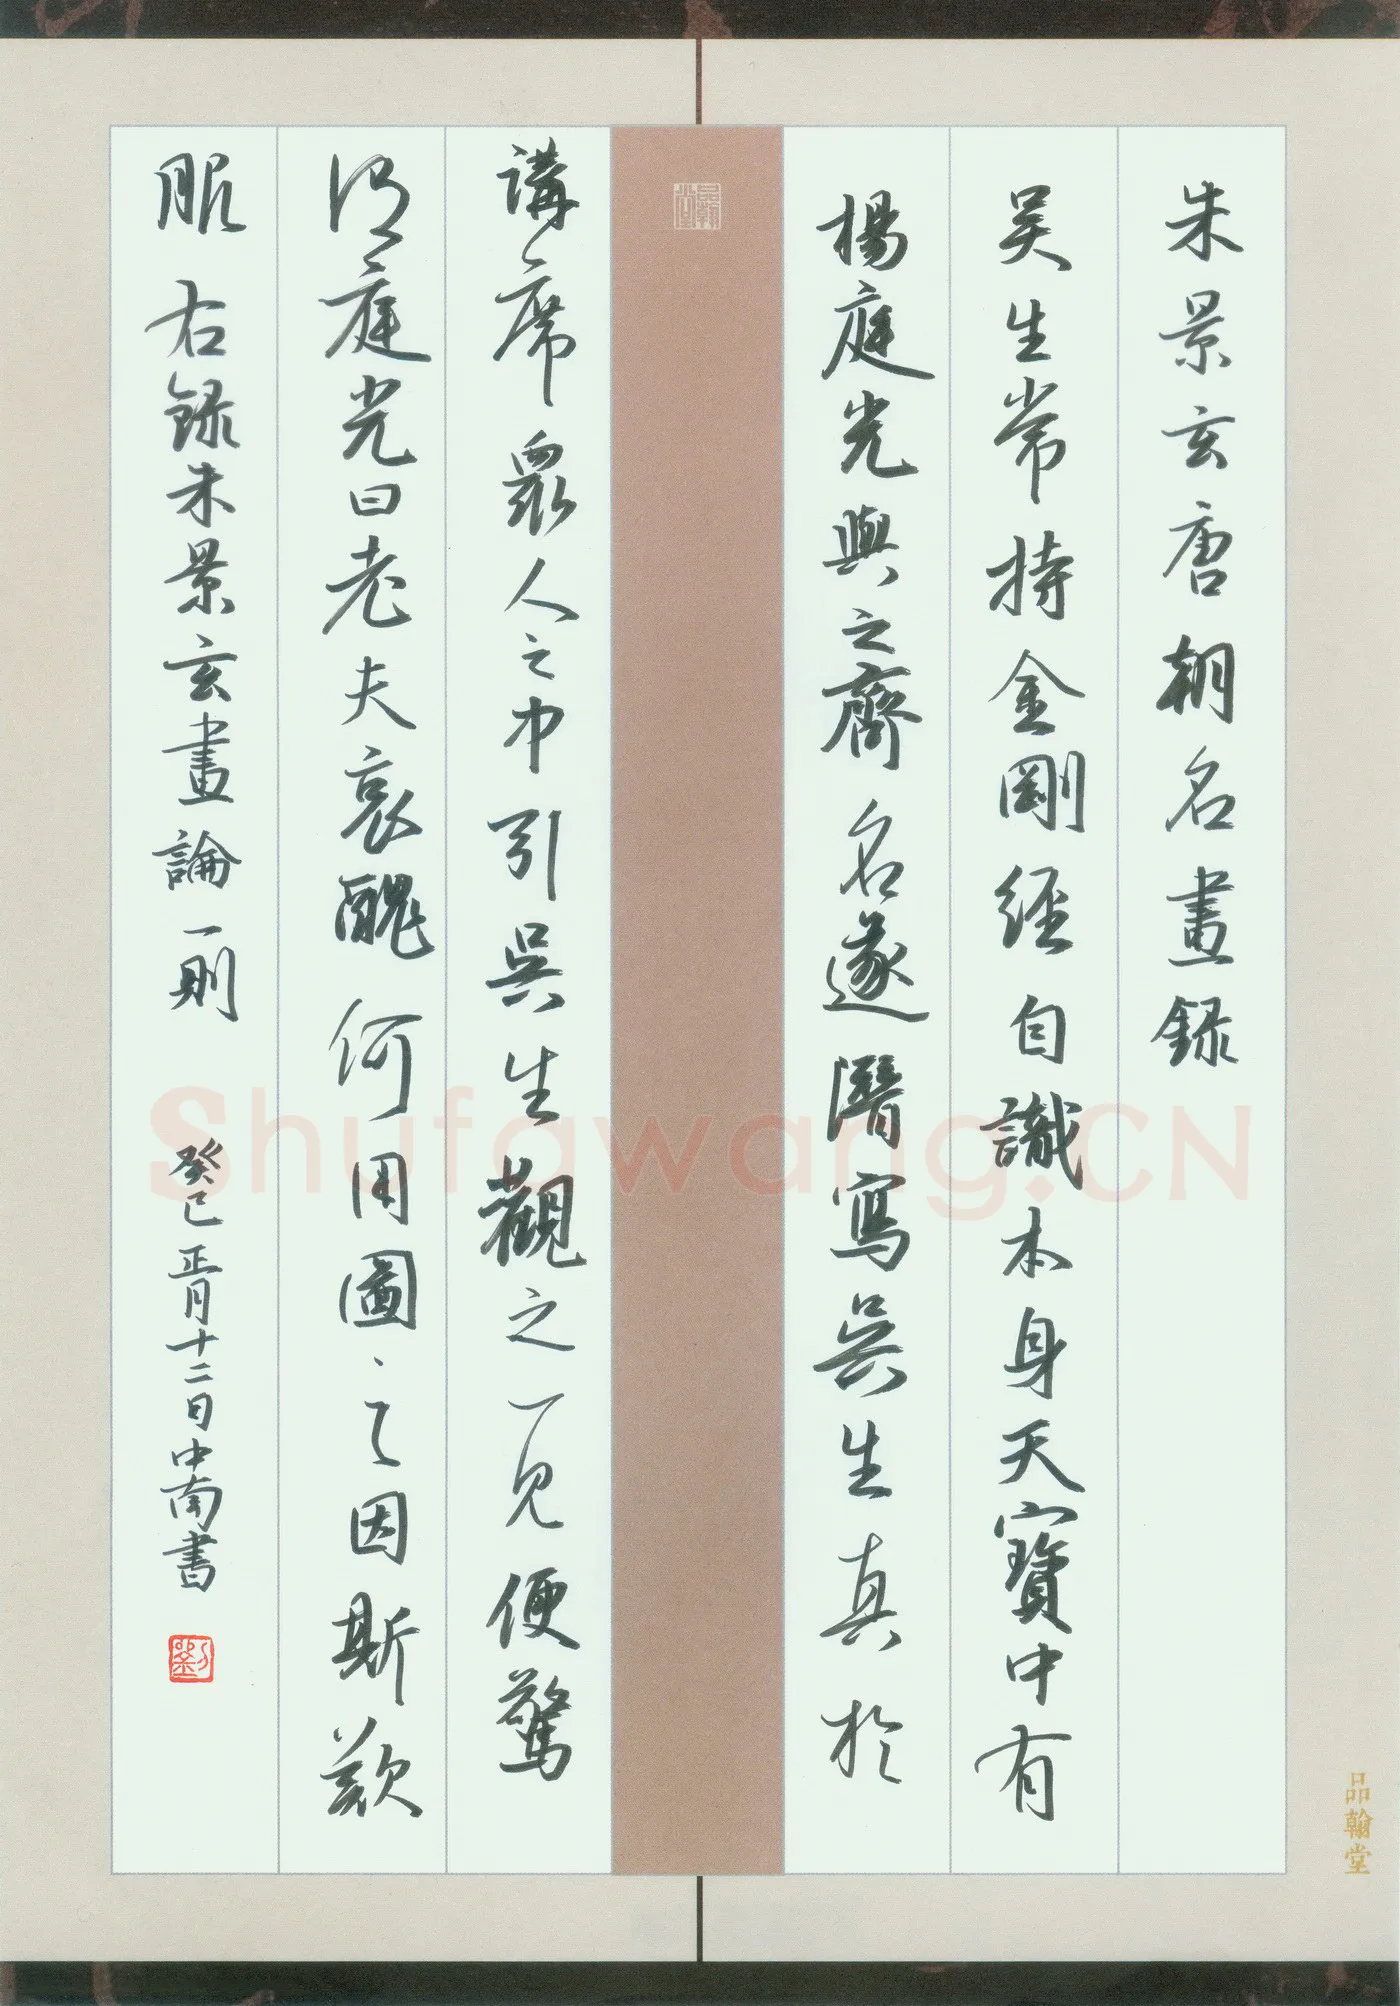 朱景玄唐朝名畫録
吴生常持金剛經自識本身天寶中有
楊庭光與之齊名遂潛寫吳生真於
講席衆人之中引吳生觀之一見便驚
語庭光曰老夫衰醜何用圖之因斯歎
服 右録朱景玄畫論一則 癸巳正月十二日中南書
劉
品翰堂
品翰堂
Shufawang.CN